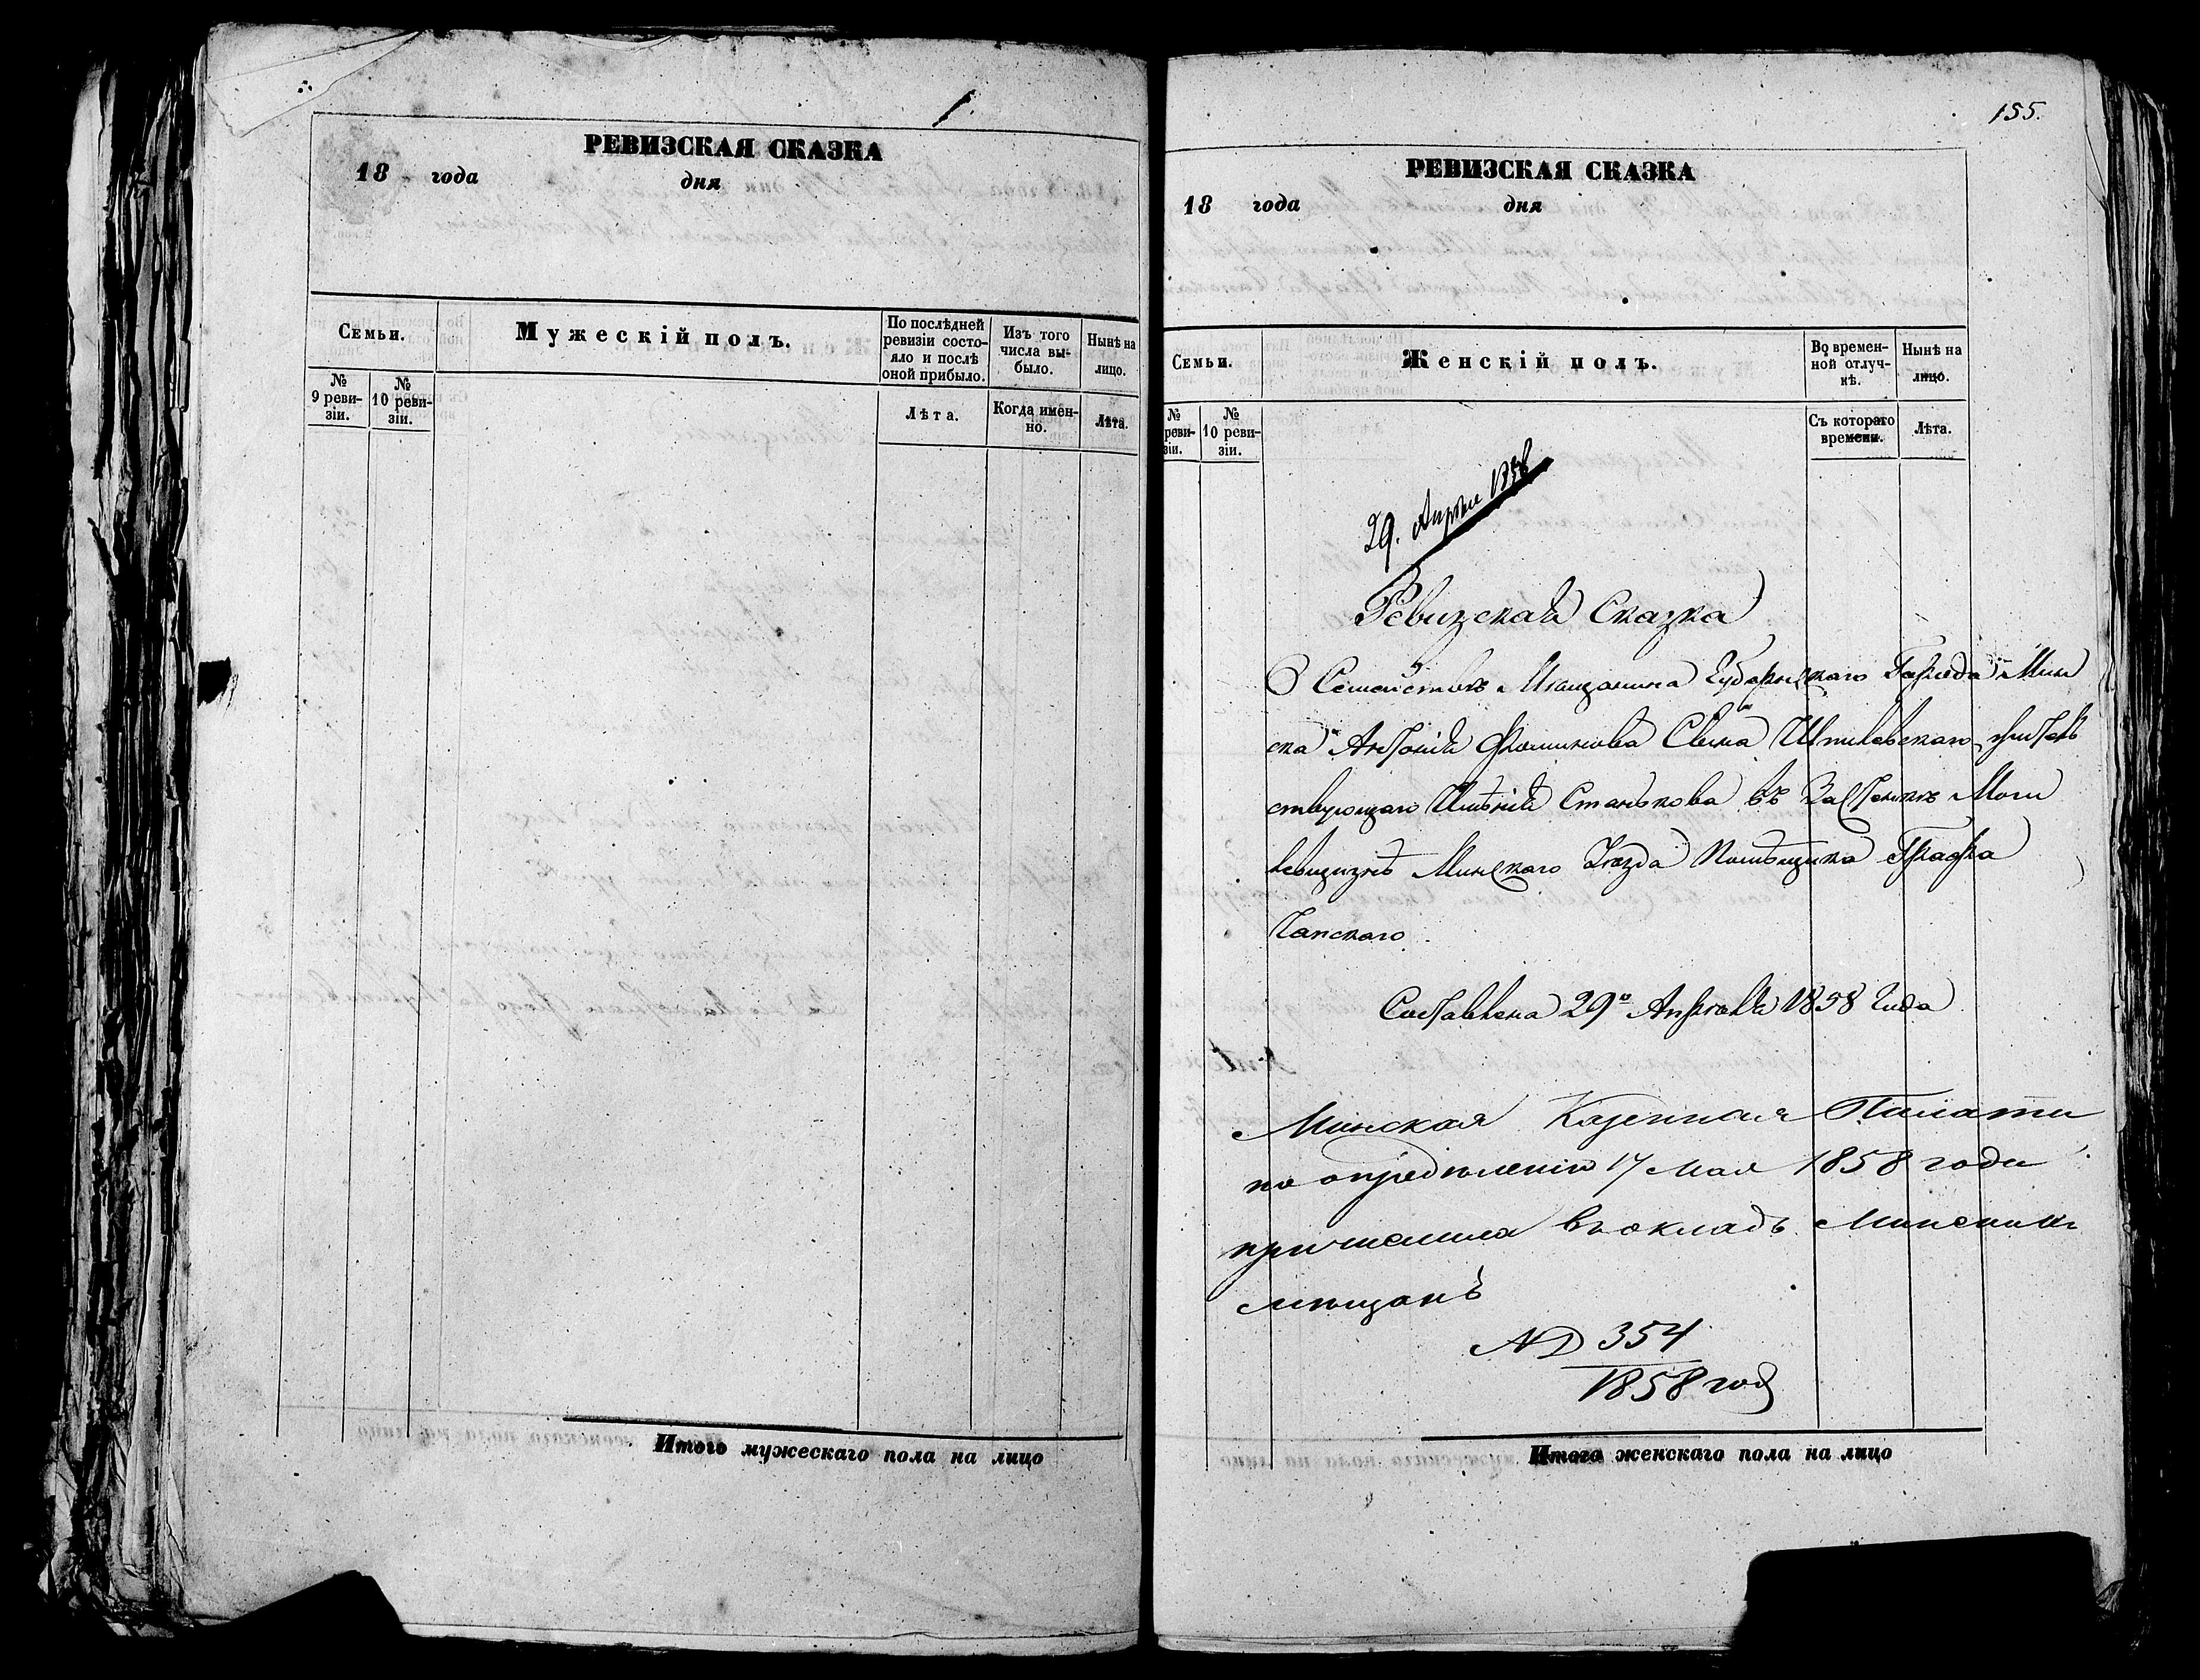 1.
РЕВИЗСКАЯ СКАЗКА
18 года дня
Семьи.
Мужескій полъ.
По послѣдней
ревизіи состо-
яло и послѣ
оной прибыло.
Изъ того
числа вы-
было.
Нынѣ на
лицо.
№
9 реви-
зіи.
№
10 реви-
зіи.
Лѣта.
Когда имен-
но.
Лѣта.
Итого мужескаго пола на лицо
155.
РЕВИЗСКАЯ СКАЗКА
18 года дня
Семьи.
Женскій полъ.
Во времен-
ной отлуч-
кѣ.
Нынѣ на
лицо.
№
реви-
зіи.
№
10 реви-
зіи.
Съ котораго
времени.
Лѣта.
29. Апрѣля 1858
Ревизская Сказка
О Семействѣ Мѣщанина Губернскаго Города Мин
ска Антонія Сына Шпилевскаго, житель
ствующаго Имѣнія Станькова въ Застенкѣ Моги
левщизнѣ Минскаго Уѣзда Помѣщика Графа
Чапскаго.
Составлена 29º Апрѣля 1858 Года
Минская Казенная Палата
по опредѣленію 17 Мая 1858 года
причислила въ окладъ Минскихъ
мѣщанъ
№ 354
1858 год
Итого женскаго пола на лицо